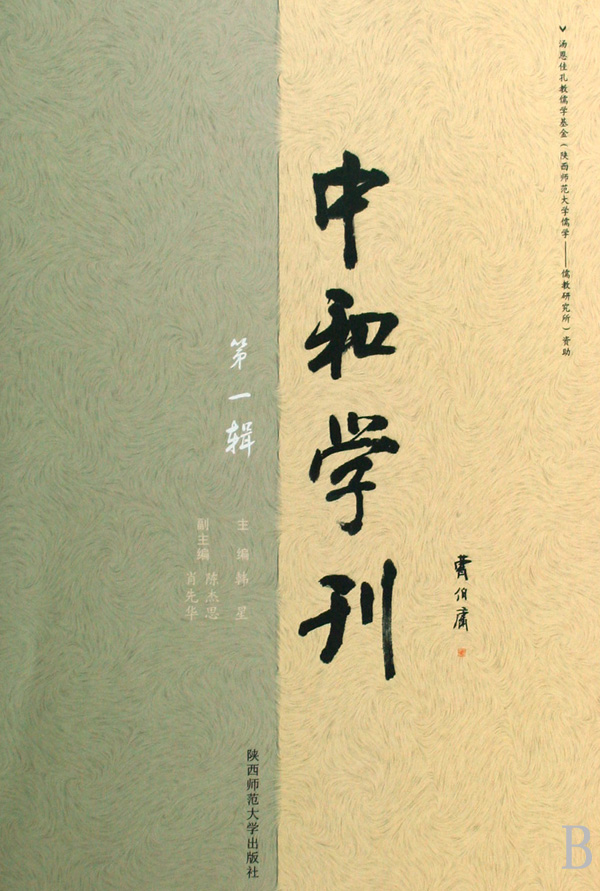 汤恩佳孔教儒学基金（陕西师范大学儒学——儒教研究所）资助
中和学刊
曹伯庸
第一辑
主编 韩星
副主编 陈杰思
肖先华
陕西师范大学出版社
B